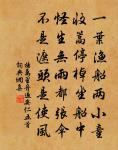 一葉漁船兩小童
收篙停棹坐船中
怪生無雨都張傘
不是遮頭是使風
楊萬里舟過安仁五首